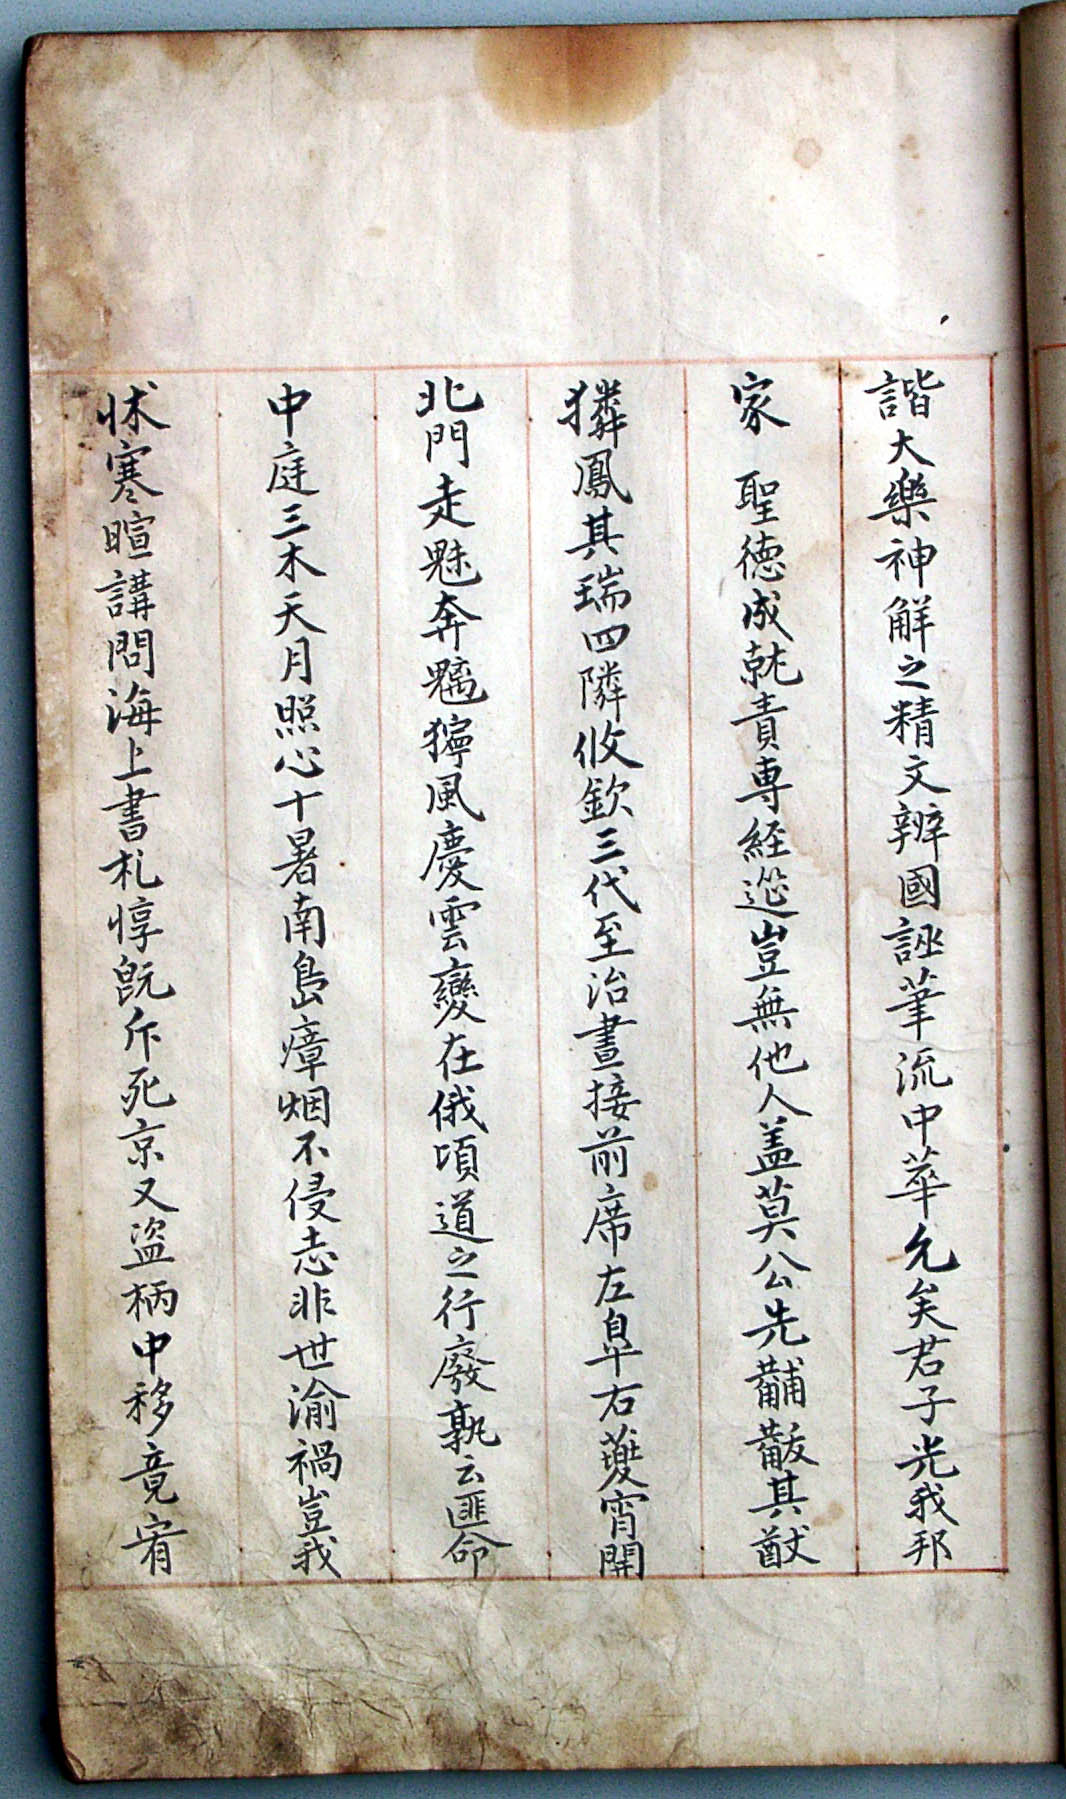 諧大樂神解之精文辨國誣筆流中華允矣君子光我邦
家 聖德成就責專經遊豈無他人盖莫公先黼黻其猷
獜鳳其瑞四隣攸欽三代至治晝接前席左臯右夔宵開
北門走魅奔魑獰風慶雲變在俄頃道之行廢孰云匪命
中庭三木天月照心十暑南島瘴烟不侵志非世渝禍豈我
怵寒暄講問海上書札惇旣斥死京又盜柄中移竟宥